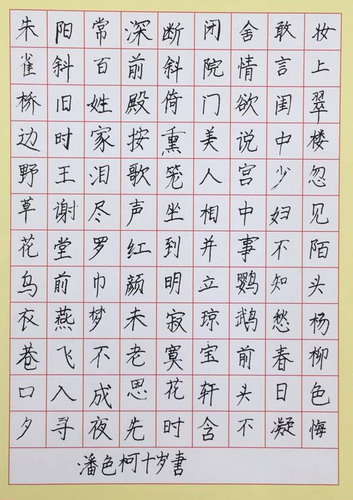 朱雀桥边野草花乌衣巷口夕
阳斜旧时王谢堂前燕飞入寻
常百姓家泪尽罗巾梦不成夜
深前殿按歌声红颜未老思先
断斜倚熏笼坐到明寂寞花时
闭院门美人相并立琼宝轩含
舍情欲说宫中事鹦鹉前头不
敢言闺中少妇不知愁春日凝
妆上翠楼忽见陌头杨柳色悔
潘色柯十岁書